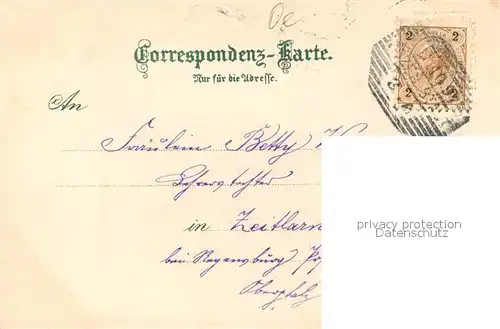 Oe
2 2
Correspondenz-Karte.
Nur für die Adresse.
2 2
An
Fräulein Betty
Lehrerstochter
in Zeitlarn
privacy protection
Datenschutz
bei Regensburg
Oberpfalz